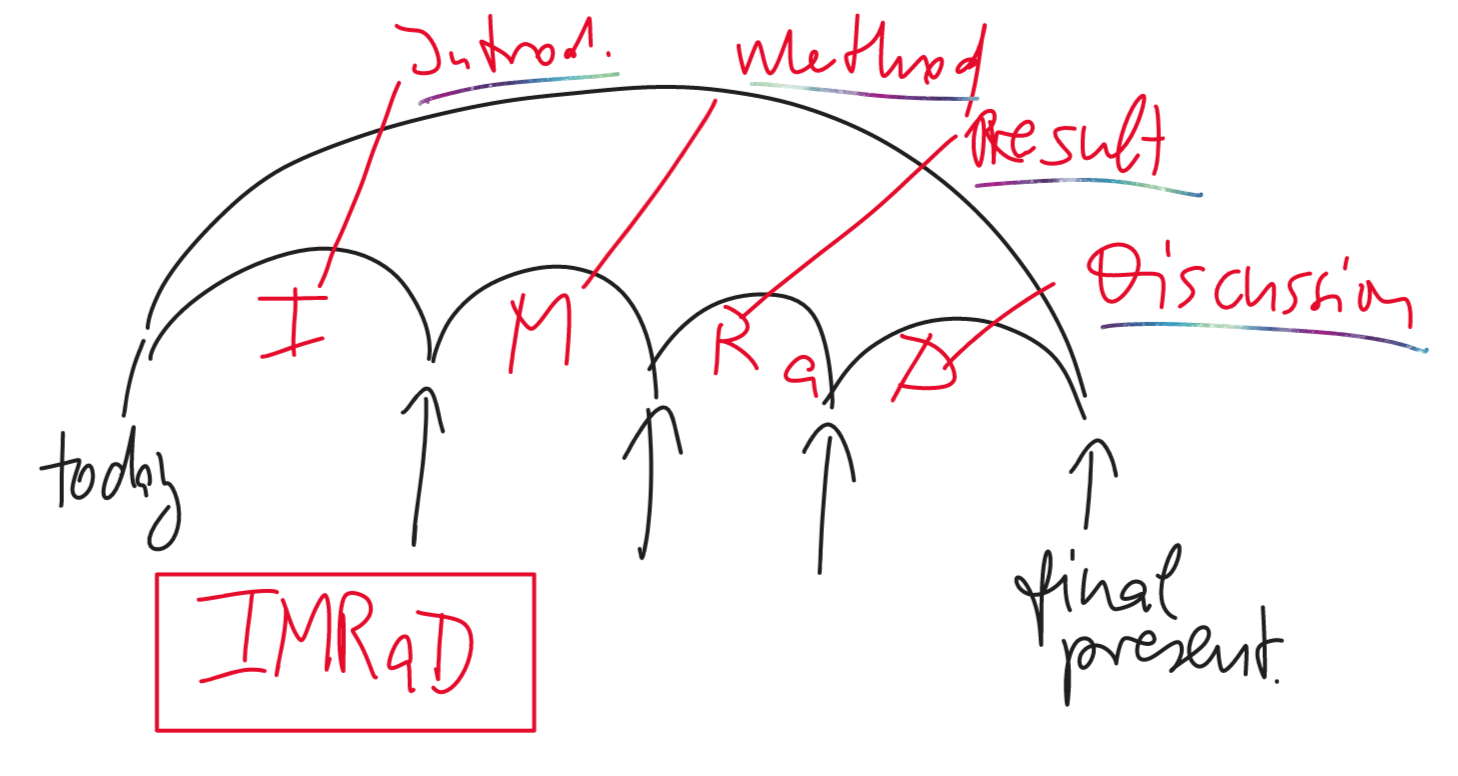 Introd.
Method
Result
Discussion
I
M
R a
D
today
final
present.
IMRaD